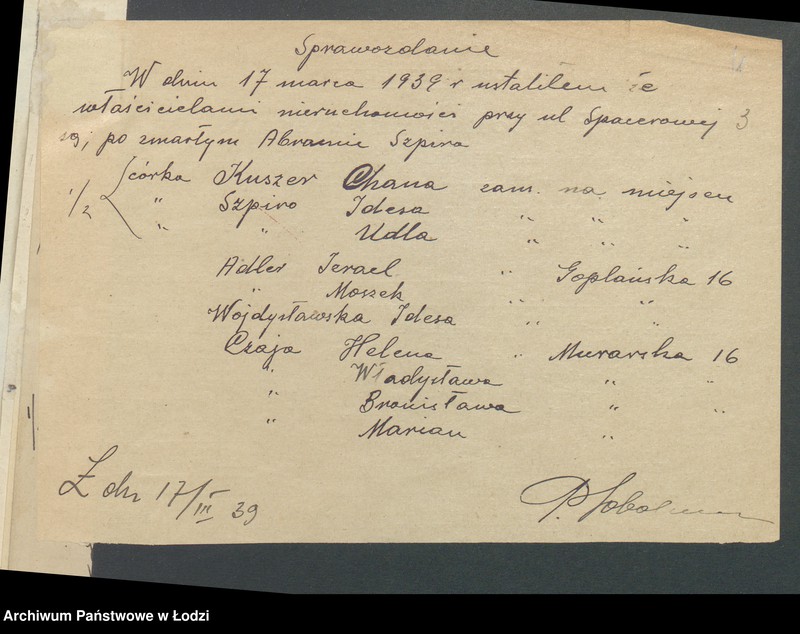 Sprawozdanie
W dniu 17 marca 1939 r ustaliłem że
właścicielami nieruchomości przy ul Spacerowej 3
są, po zmarłym Abramie Szpiro
1/2 córka Kuszer Chana zam. na miejscu
" Szpiro Idesa " " "
" " Udla " " "
Adler Izrael " Goplańska 16
" Moszek " "
Wojdysławska Idesa " "
Czaja Helena " Murarska 16
" Władysława " "
" Bronisława " "
" Marian "
Ł dn 17/III 39
Archiwum Państwowe w Łodzi